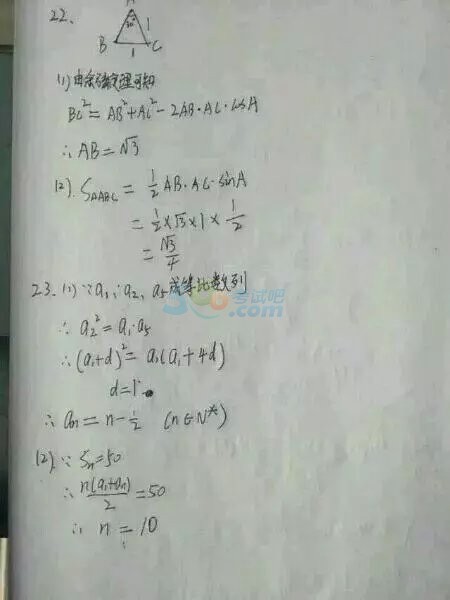 22.
A
30°
1
B
C
1
(1) 由余弦定理可知
BC²=AB²+AC²-2AB·AC·cosA
∴ AB=√3
(2). S△ABC = 1/2 AB·AC·sinA
= 1/2×√3×1×1/2
= √3/4
23. (1) ∵ a₁, a₂, a₅成等比数列
∴ a₂²=a₁·a₅
∴ (a₁+d)²=a₁(a₁+4d)
d=1
∴ an=n-1/2 (n∈N*)
(2). ∵ Sn=50
∴ n(a₁+an)/2=50
∴ n=10
考试吧
.com